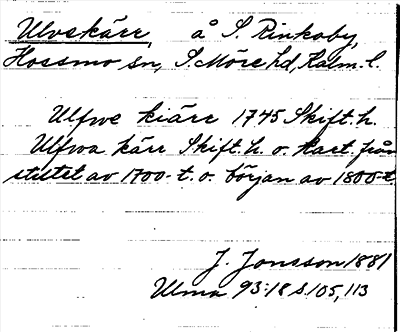 Ulvskärr, å S. Rinkaby,
Hossmo sn, S. Möre hd, Kalm. l.
Ulfwe kiärr 1745 Skift. h.
Ulfwa kärr Skift. h. o. Kart. från
slutet av 1700-t. o. början av 1800-t.
J. Jonsson 1881
Ulma 93:18 s. 105, 113